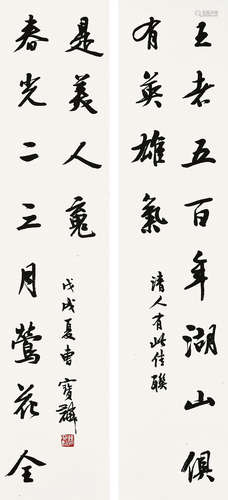 王者五百年湖山俱
有英雄氣
清人有此佳聯
春光二三月鶯花全
是美人魂
戊戌夏曹寶麟